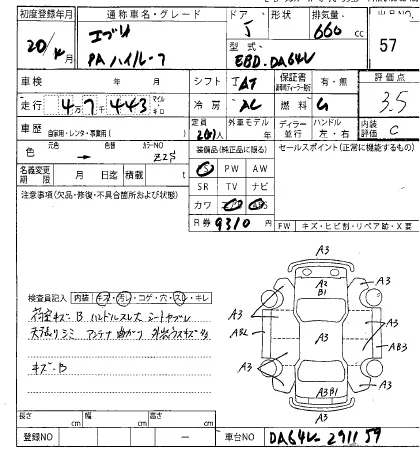 初度登録年月 通称車名・グレード ドア 形状 排気量 出品NO
20/4月 エブリ J 660 cc 57
PA ハイルーフ 型式 EBD-DA64V
車検 年 月 シフト IAT 保証書 有・無 評価点
走行 4万7千443 マイル キロ 冷房 AC 燃料 G 3.5
車歴 自家用・レンタ・事業用( ) 定員 人 外車モデル 年 ディーラー 並行 ハンドル 左・右 内装評価 C
色 元色 → 色替 カラーNO Z2S 装備品(純正品に限る) セールスポイント(正常に機能するもの)
名義変更期限 月 日迄 積載 t PS PW AW
注意事項(欠品・修復・不具合箇所および状態) SR TV ナビ
カワ
R券 9310 円 FW キズ・ヒビ割・リペア跡・X要
A3
A3 A2 B1 A3
検査員記入 内装 キズ・汚レ・コゲ・穴・スレ・キレ
キズB ハンドルスレ大 シート
A3 A3
シミ アンテナ曲がり
A3 AB3
キズ・B
A3 A3
A3B1
A3
長さ cm 幅 cm 高さ cm
登録NO ー 車台NO DA64V-291159